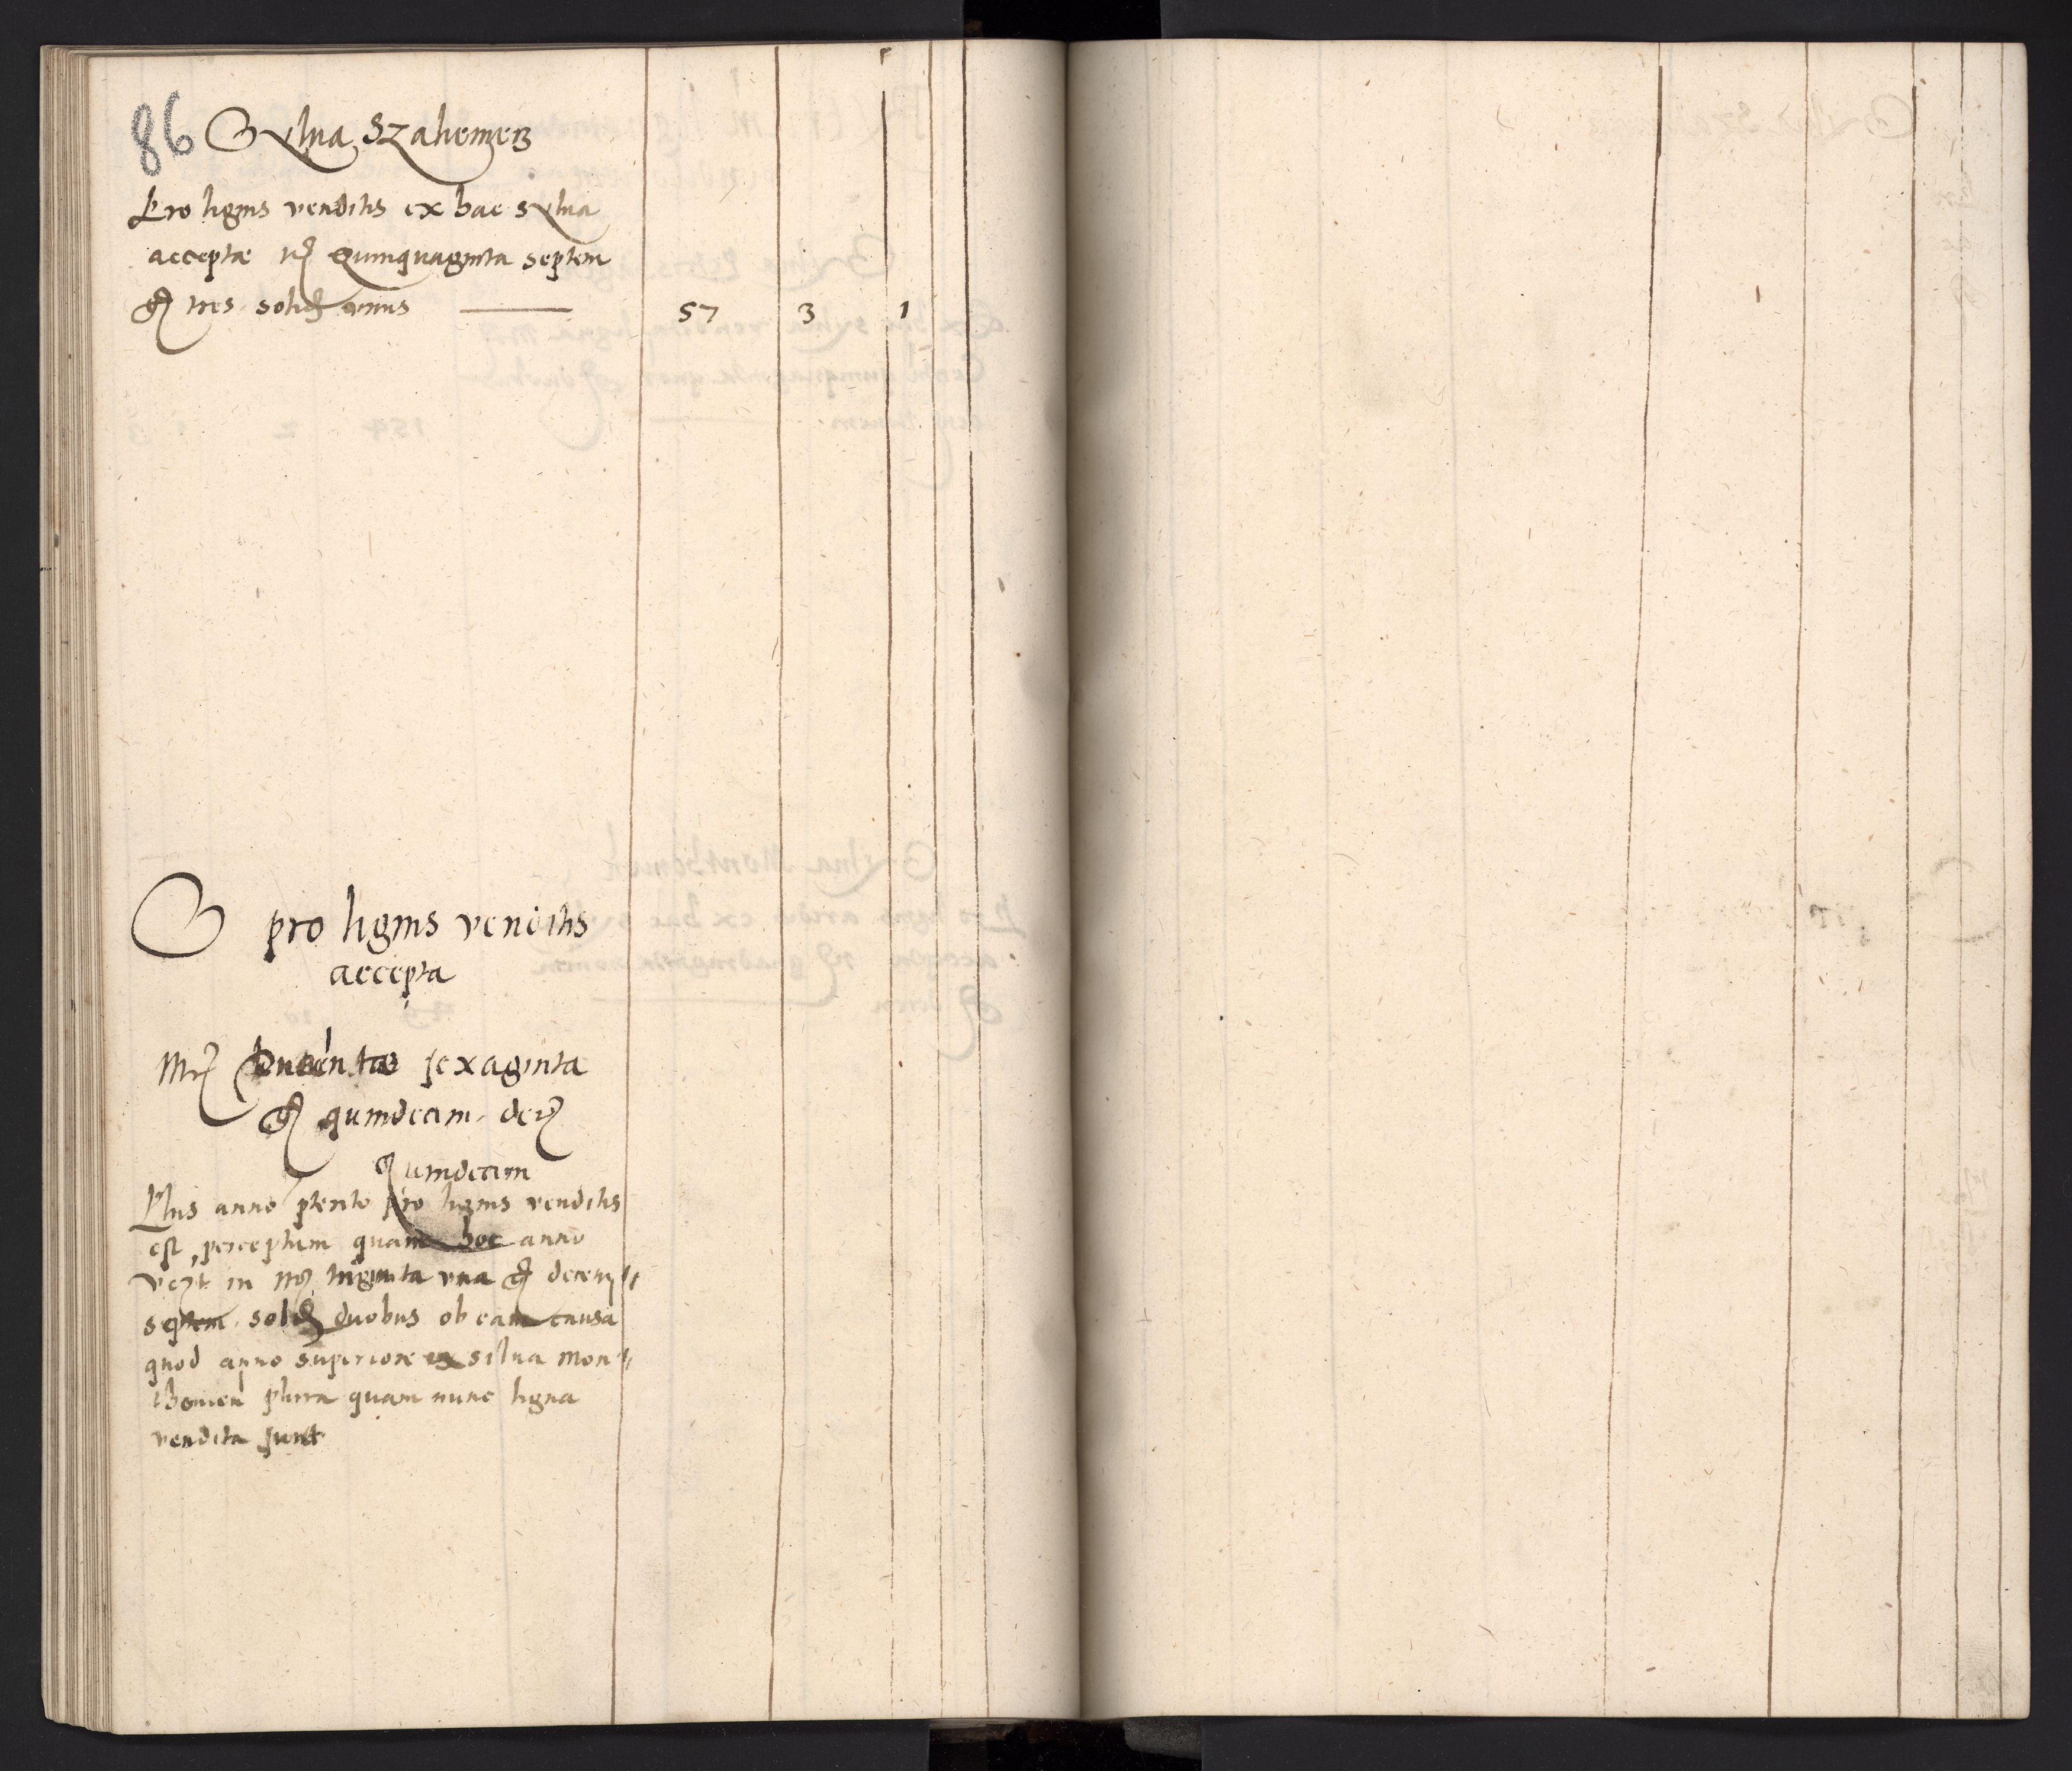 86 Sylua Szahemen
Pro lignis venditis ex hac sylua
acceptae mr̃ Quinquaginta septem
gr̃ tres solid̃ unus 57 3 1
S pro lignis venditis
accepta
Mr̃ Ducentae sexaginta
gr̃ quindecim den̄
quindecim
Plus anno pterito pro lignis venditis
est perceptum quam hoc anno
vcz̃t in mr̃ triginta vna gr̃ decem
septem solid̃ duobus ob eam causa
quod anno superiore ex silua Mon
thomen plura quam nunc ligna
vendita sunt